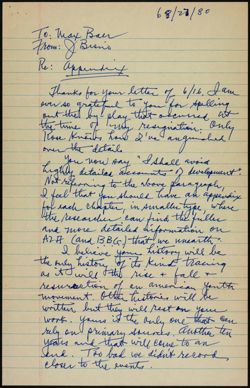 6/23/80
To: Max Baer
From: J Bisno
Re: Appendix
Thanks for your letter of 6/16. I am
ever so grateful to you for spelling
out the by play that occurred at
the time of my resignation. Only
Rose knows how I've anguished
over the details.
You now say "I shall avoid
highly detailed accounts of development".
Not referring to the above paragraph,
I feel that you should have an appendix
for each chapter, in smaller type where
the researcher can find the fuller
and more detailed information on
AZA (and BBG) that we unearth.
I believe your history will be
the only history of its kind tracing
as it will the rise + fall +
resurrection of an american youth
movement. Other histories will be
written but they will rest on your
work. Yours is the only one that can
rely on primary sources. Another ten
years and that will come to an
end. Too bad we didn't record
closer to the events.